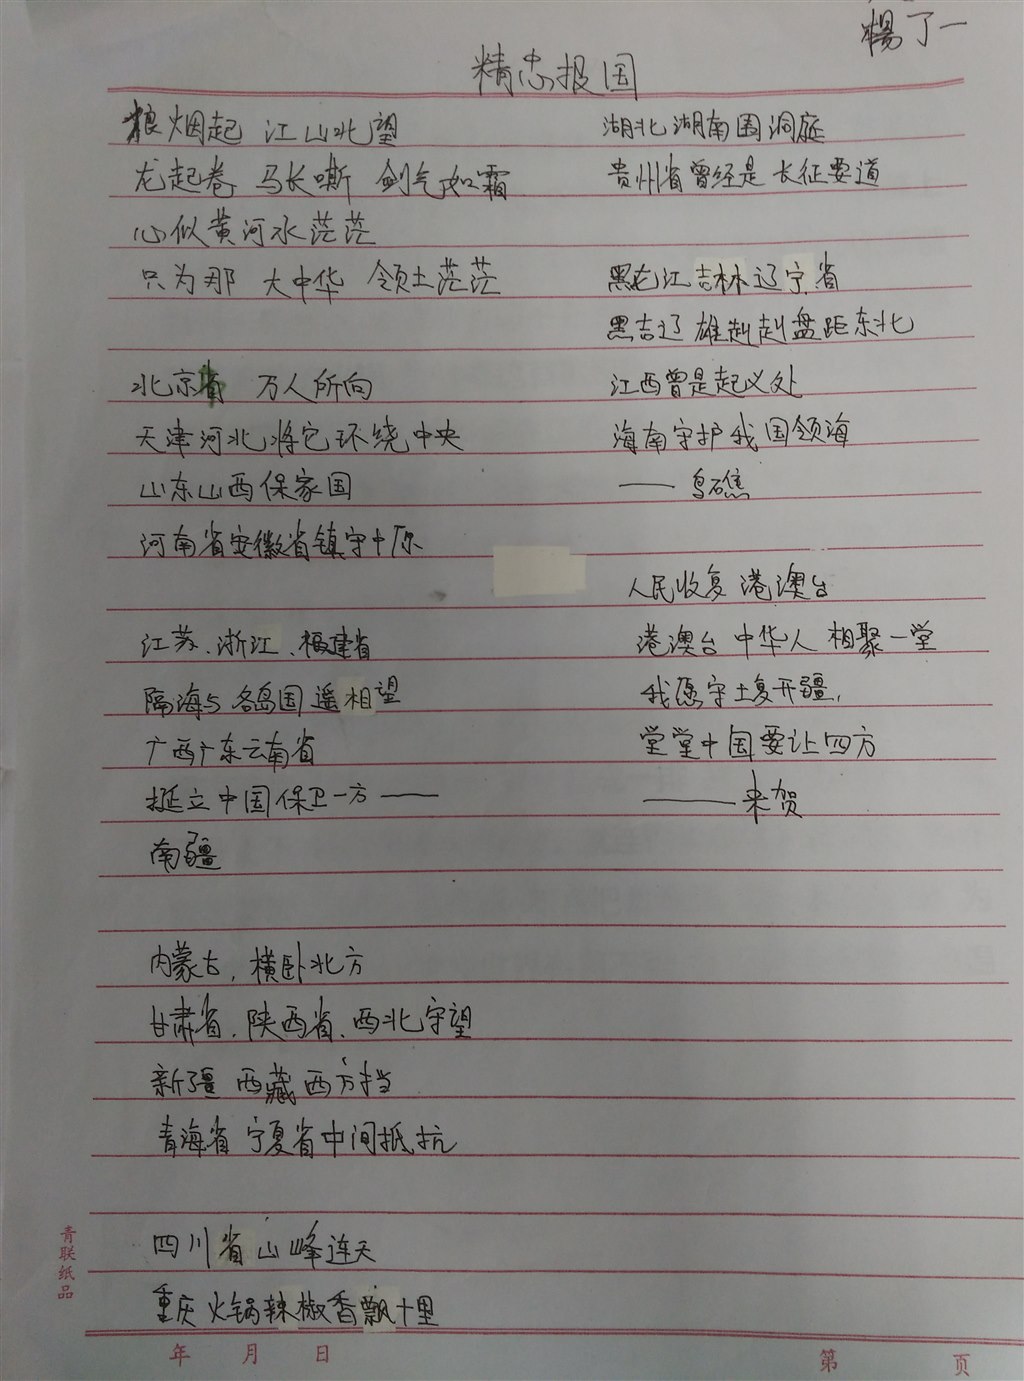 杨了一
精忠报国
狼烟起 江山北望
龙起卷 马长嘶 剑气如霜
心似黄河水茫茫
只为那 大中华 领土茫茫
北京省 万人所向
天津河北将它环绕中央
山东山西保家国
河南省安徽省镇守中原
江苏、浙江、福建省
隔海与各岛国遥相望
广西广东云南省
挺立中国保卫一方——
南疆
内蒙古,横卧北方
甘肃省、陕西省、西北守望
新疆 西藏西方挡
青海省 宁夏省中间抵抗
四川省山峰连天
重庆火锅辣椒香飘十里
湖北湖南围洞庭
贵州省曾经是长征要道
黑龙江吉林辽宁省
黑吉辽 雄赳赳盘距东北
江西曾是起义处
海南守护我国领海
——岛礁
人民收复港澳台
港澳台 中华人 相聚一堂
我愿守土复开疆,
堂堂中国要让四方
——来贺
青联纸品
年 月 日
第 页